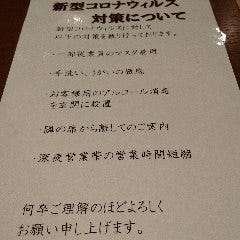 新型コロナウィルス
対策について
新型コロナウィルスに対して
以下の対策を執り行っております。
・一部従業員のマスク着用
・手洗い、うがいの徹底
・お客様用のアルコール消毒
を玄関に設置
・隣の席から離してのご案内
・深夜営業帯の営業時間短縮
何卒ご理解のほどよろしく
お願い申し上げます。